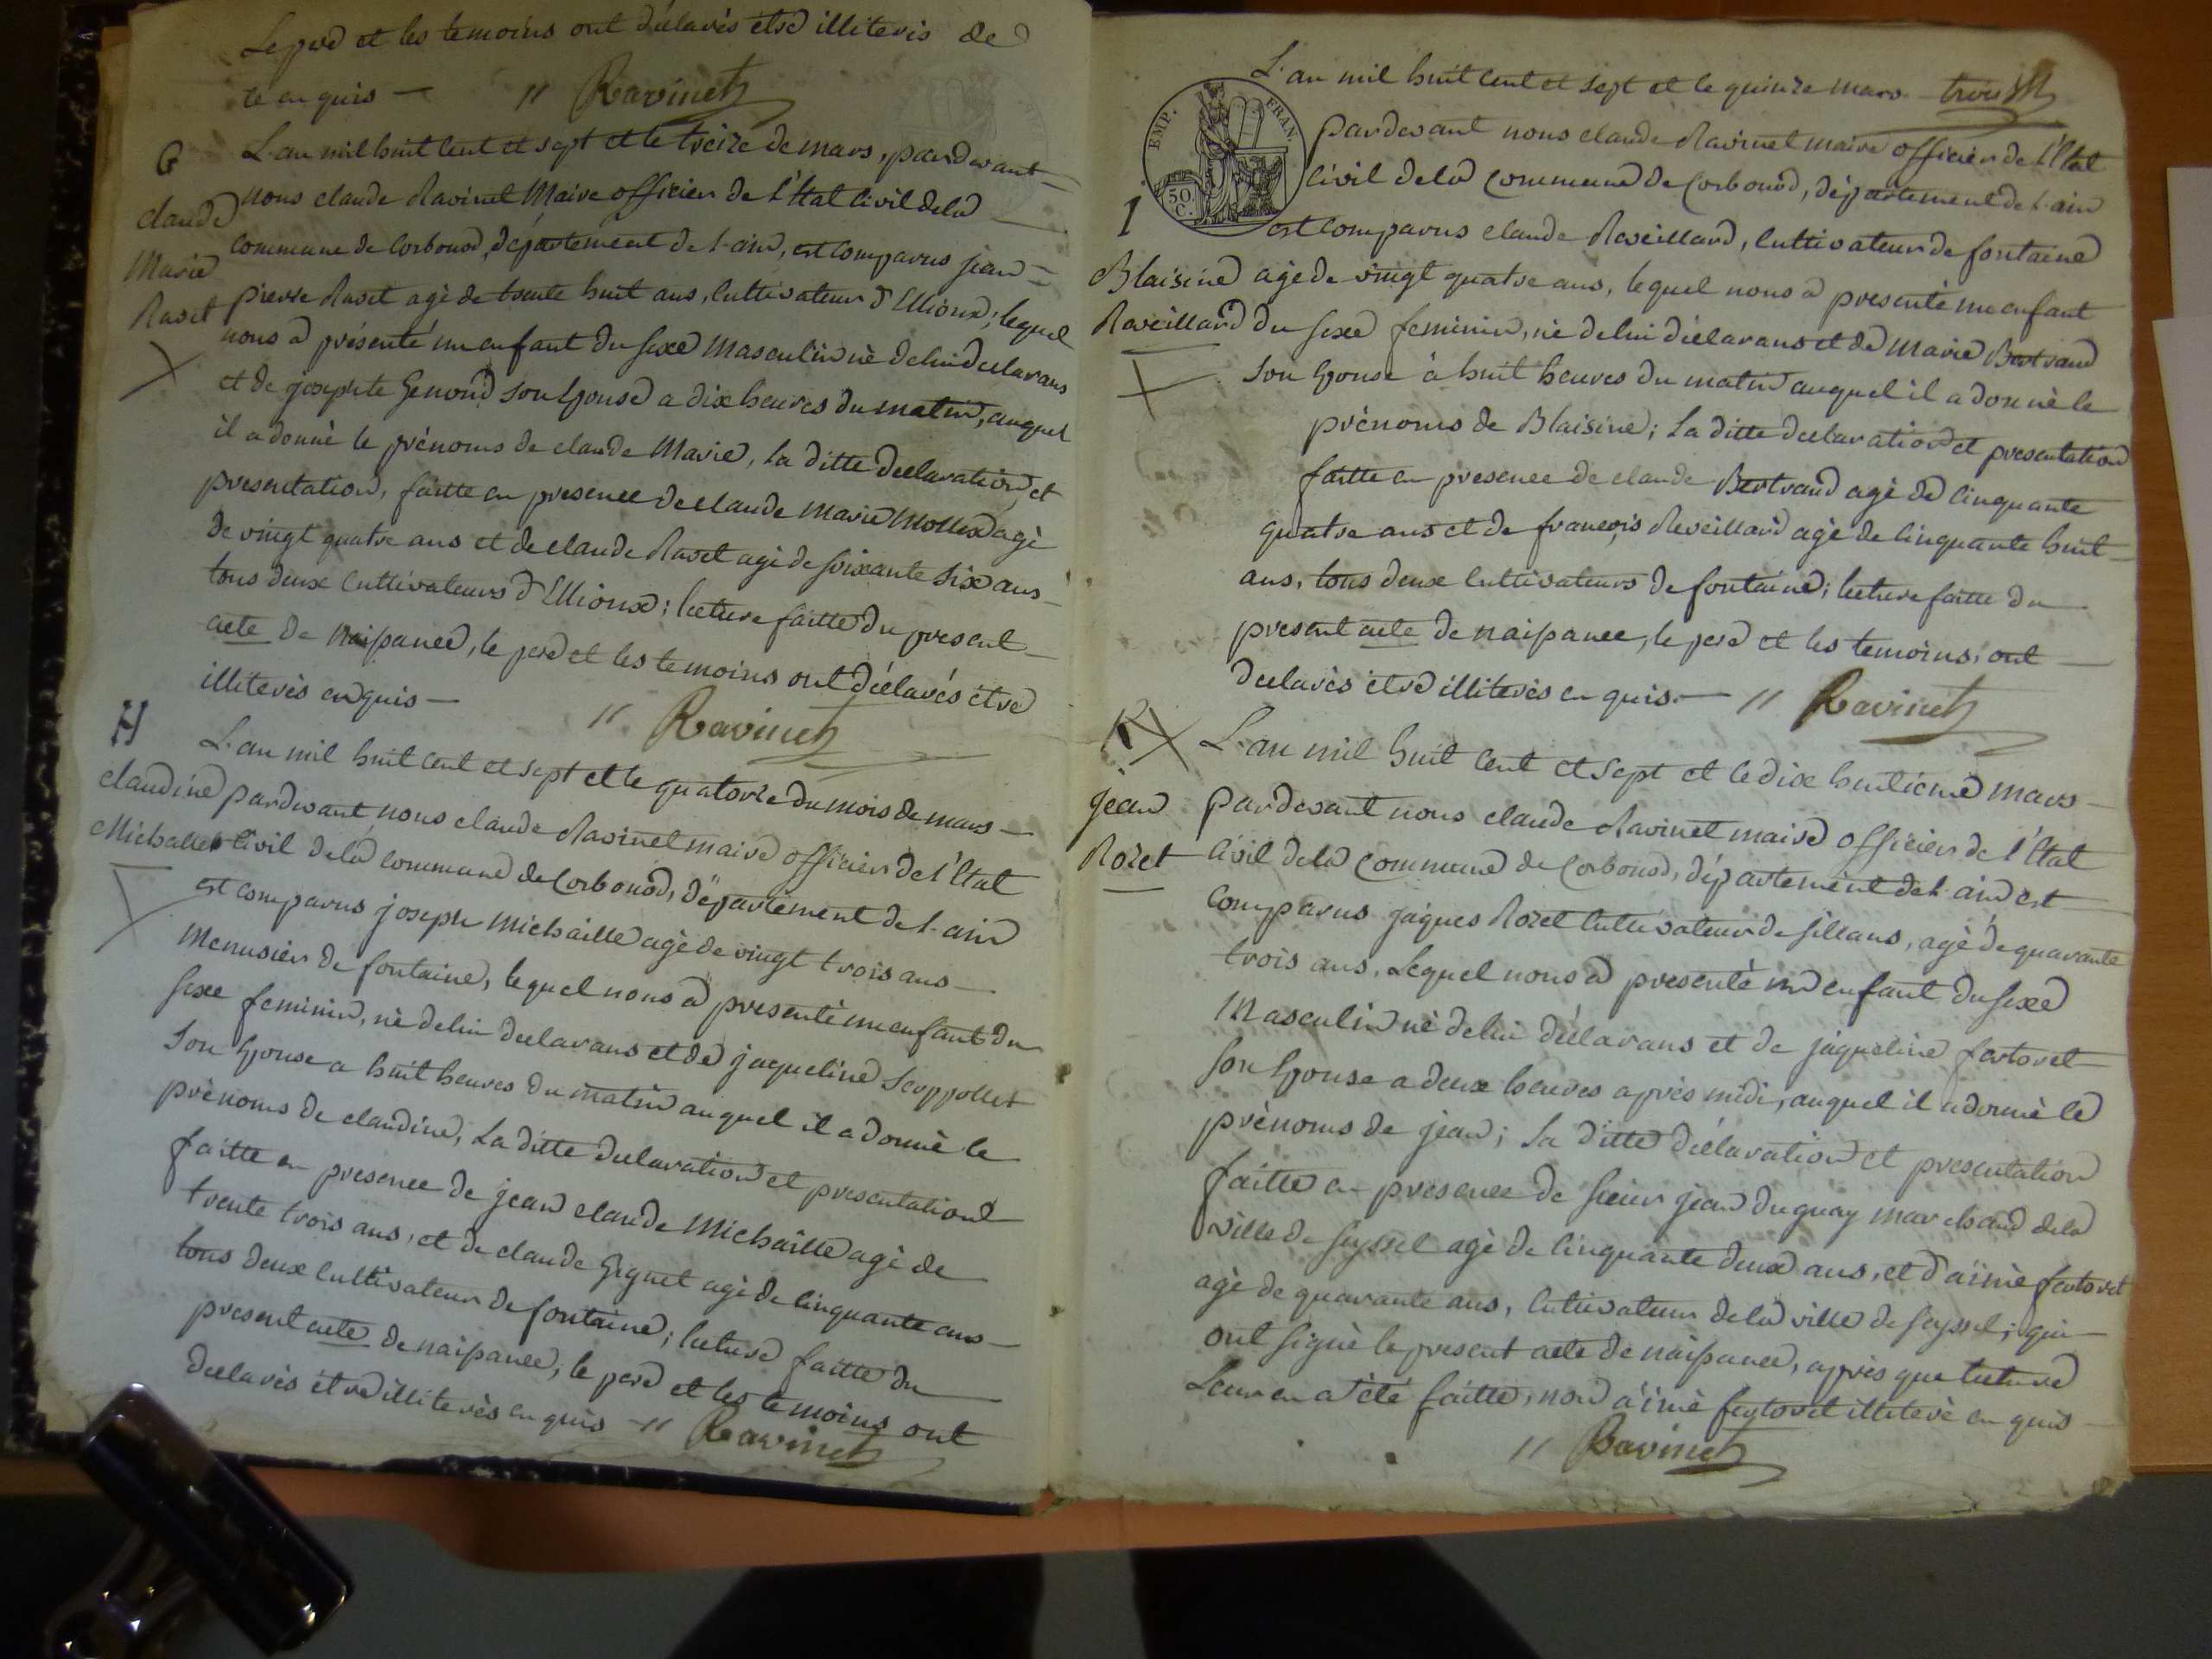 Le pere et les temoins ont déclarés etre illiterés de
te en quis — " Ravinet
G
L'an mil huit cent et sept et le treize de mars, pardevant
claude
nous claude Ravinet Maire officier de l'Etat Civil de la
Marie
commune de Corbonod, département de l'ain, est comparus jean
Ravet
pierre Ravet agé de trente huit ans, Cultivateur d'Ellioux, lequel
nous a présenté un enfant du sexe Masculin né de lui declarans
et de josephte Genond son Epouse a dix heures du matin, auquel
il a donné le prénoms de claude Marie, la ditte declaration et
presentation, faitte en presence de claude Marie Mollex agé
de vingt quatre ans et de claude Ravet agé de soixante six ans
tous deux Cultivateurs d'Ellioux; lecture faitte du present
acte de naissance, le pere et les temoins ont déclarés etre
illiterés enquis — " Ravinet
H
L'an mil huit cent et sept et le quatorze du mois de mars
claudine
pardevant nous claude Ravinet maire officier de l'Etat
Michallet
Civil de la commune de Corbonod, département de l'ain
est comparus joseph Michaille agé de vingt trois ans
Menusier de fontaine, lequel nous a presenté un enfant du
sexe feminin, né de lui declarans et de jaqueline
son Epouse a huit heures du matin auquel il a donné le
prénoms de claudine, La ditte declaration et presentation
faitte en presence de jean claude Michaille agé de
trente trois ans, et de claude Gignet agé de cinquante ans
tous deux cultivateur de fontaine; lecture faitte du
present acte de naissance, le pere et les temoins ont
declarés etre illiterés en quis — " Ravinet
L'an mil huit cent et sept et le quinze mars trois
EMP. FRAN.
50. C.
pardevant nous claude Ravinet maire officier de l'Etat
Civil de la commune de Corbonod, département de l'ain
1
est comparus claude Reveillard, Cultivateur de fontaine
Blaisine
agé de vingt quatre ans, lequel nous a presenté un enfant
Reveillard
du sexe feminin, né de lui déclarans et de Marie Bertrand
son Epouse à huit heures du matin auquel il a donné le
prénoms de Blaisine; La ditte declaration et presentation
faitte en presence de claude Bertrand agé de cinquante
quatre ans et de françois Reveillard agé de cinquante huit
ans, tous deux Cultivateurs de fontaine; lecture faitte du
present acte de naissance, le pere et les temoins, ont
declarés etre illiterés en quis. — " Ravinet
K
L'an mil huit cent et sept et le dix huitieme mars
jean
pardevant nous claude Ravinet maire officier de l'Etat
Rozet
Civil de la commune de Corbonod, département de l'ain est
comparus jaques Rozet Cultivateur de sillans, agé de quarante
trois ans, Lequel nous a presenté un enfant du sexe
Masculin né de lui déclarans et de jaqueline fertoret
son Epouse a deux heures après midi, auquel il a donné le
prénoms de jean; La ditte déclaration et presentation
faitte en presence de sieur jean duguay marchand de la
ville de seyssel agé de cinquante deux ans, et d'aimé fertoret
agé de quarante ans, cultivateur de la ville de seyssel; qui
ont signé le present acte de naissance, après que lecture
Leur en a été faitte, non aimé fertoret illiteré en quis
" Ravinet